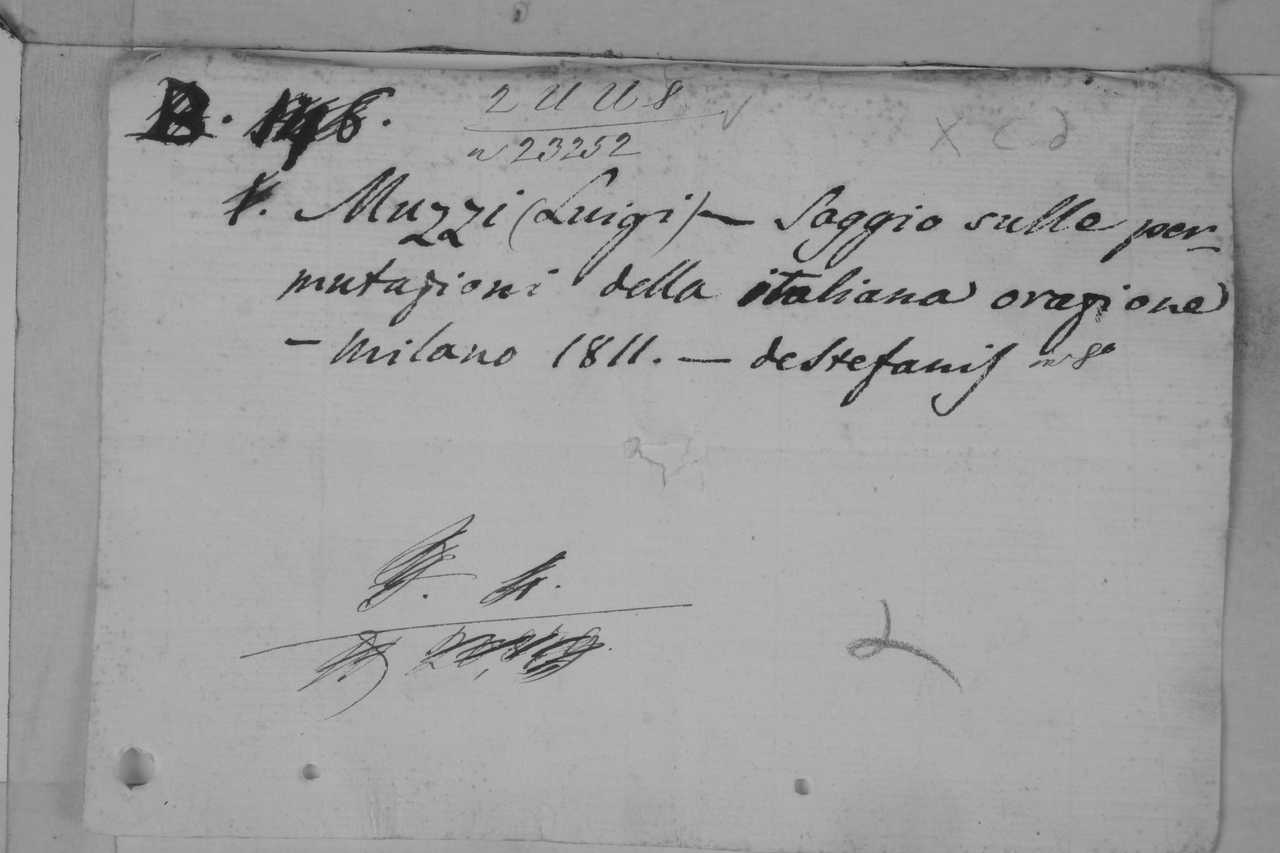 B.
2 U U 8
n 23252
X C d
Muzzi (Luigi) — Saggio sulle per-
mutazioni della italiana orazione
– Milano 1811. — deStefanis in 8º
2